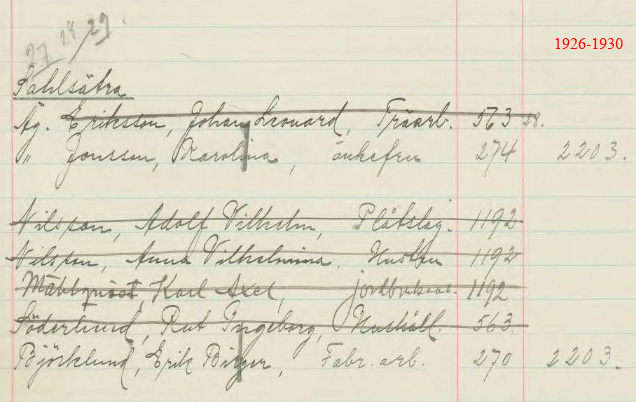 27 28/29.
1926-1930
Sählsätra
Äg. Eriksson, Johan Leonard, Träarb. 563 28.
" Jonsson, Karolina, änkefru 274 2203.
Nilsson, Adolf Vilhelm, Plåtslag. 1192
Nilsson, Anna Vilhelmina. Hustru 1192
Mählqvist, Karl Axel, 1192
Söderlund, Rut Ingeborg, Hushåll. 563
Björklund, Erik Birger, Fabr. arb. 270 2203.